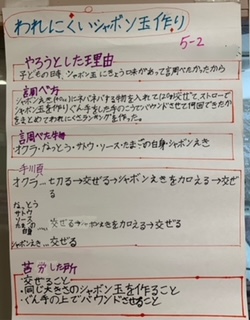 われにくいシャボン玉作り
5-2
やろうとした理由
子どもの時、シャボン玉にきょう味があって調べたかったから
調べ方
シャボンえき(40mL)にネバネバする物を入れて(12g)交ぜて、ストローで
シャボン玉を作りぐん手をした手のこうでバウンドさせて何回できたか
をまとめてわれにくさランキングを作った。
調べた物
オクラ・なっとう・サトウ・ソース・たまごの白身・シャボンえき
手順
オクラ… 切る→交ぜる→シャボンえきを加える→交ぜる
なっとう
サトウ
ソース
たまごの白身… 交ぜる→シャボンえきを加える→交ぜる
シャボンえき… 交ぜる
苦労した所
・交ぜること
・同じ大きさのシャボン玉を作ること
・ぐん手の上でバウンドさせること